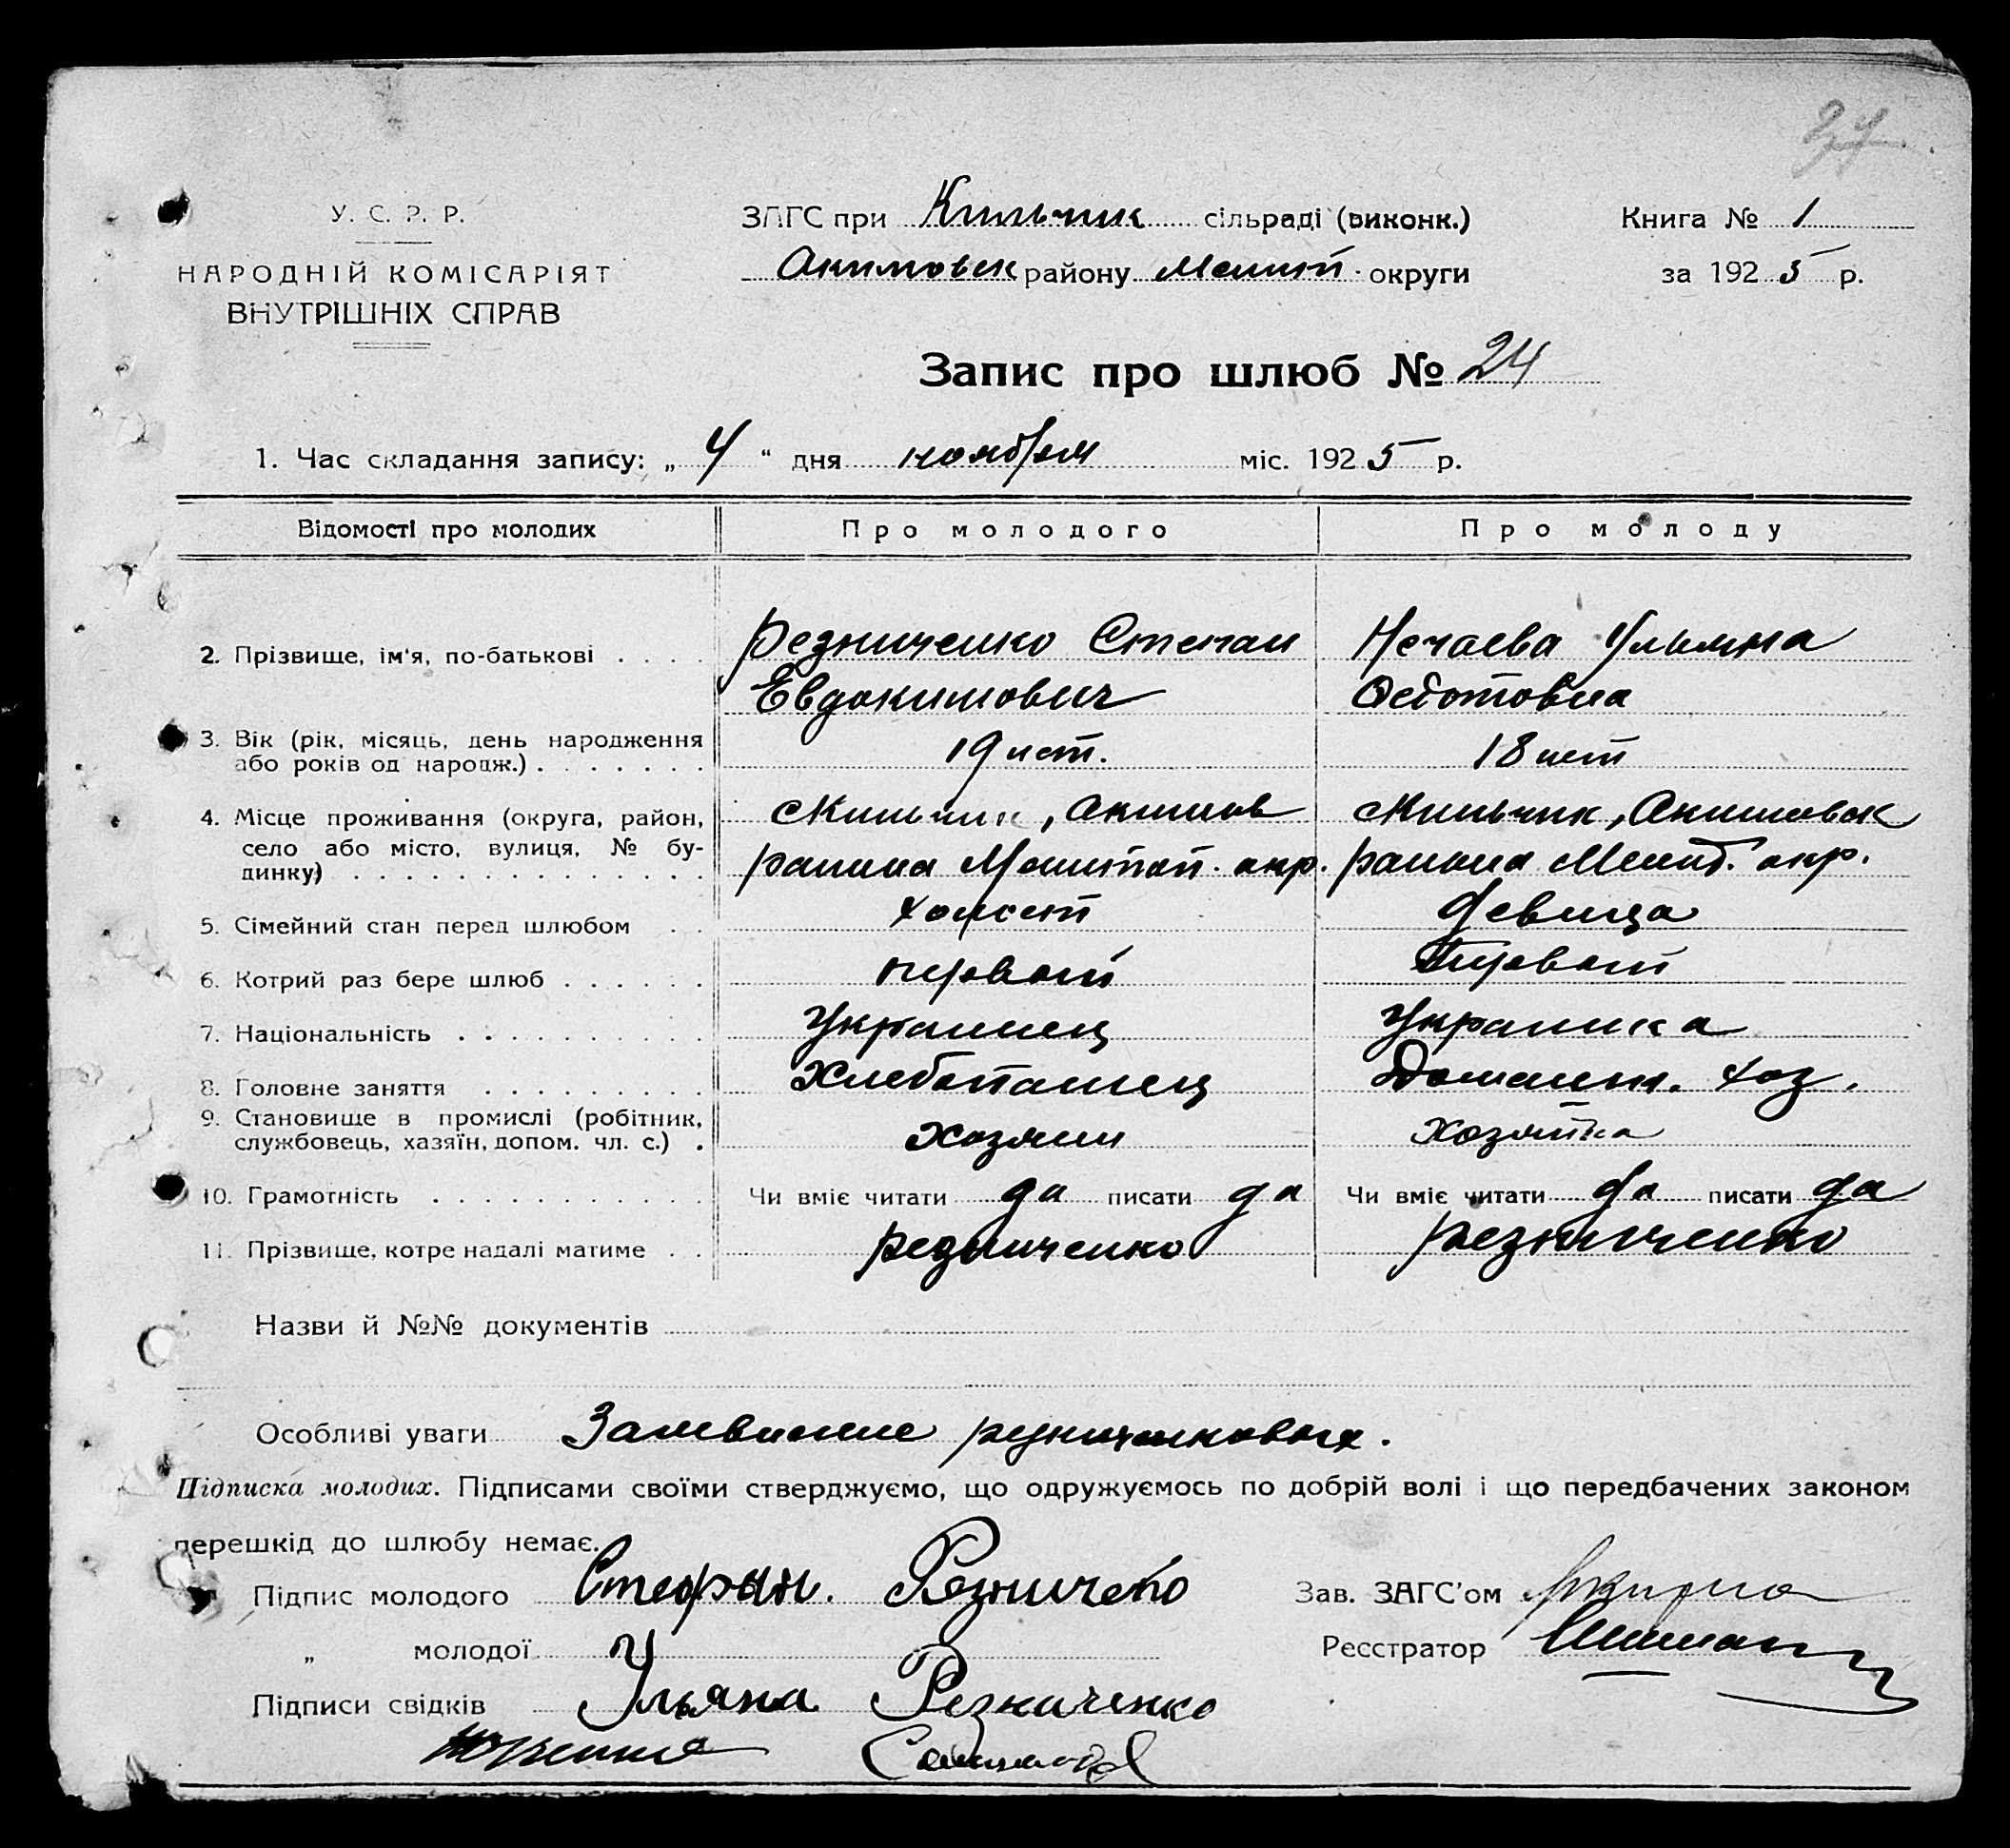 У. С. Р. Р.
НАРОДНІЙ КОМІСАРІЯТ
ВНУТРІШНІХ СПРАВ
ЗАГС при Кильчик сільраді (виконк.)
Акимовск району Мелит. округи
Книга № 1
за 1925 р.
Запис про шлюб № 24
1. Час складання запису: „ 4 “ дня ноября міс. 1925 р.
Відомості про молодих Про молодого Про молоду
2. Прізвище, ім'я, по-батькові . . . . Резниченко Степан Нечаева Ульяна
Евдокимович
3. Вік (рік, місяць, день народження
або років од народж.) . . . . . . . 19 лет. 18 лет
4. Місце проживання (округа, район, с Кильчик, Акимов с Кильчик, Акимовск
село або місто, вулиця, № бу-
динку) . . . . . . . . . . . . . . района Мелитоп. окр. района Мелит. окр.
5. Сімейний стан перед шлюбом . . холост девица
6. Котрий раз бере шлюб . . . . . . первый Первый
7. Національність . . . . . . . . . Украинец Украинка
8. Головне заняття . . . . . . . . . Хлебопашец Домашн. хоз.
9. Становище в промислі (робітник,
службовець, хазяїн, допом. чл. с.) . Хозяин Хозяйка
10. Грамотність . . . . . . . . . . . Чи вміє читати да писати да Чи вміє читати да писати да
11. Прізвище, котре надалі матиме . . Резниченко Резниченко
Назви й №№ документів
Особливі уваги
Підписка молодих. Підписами своїми стверджуємо, що одружуємось по добрій волі і що передбачених законом
перешкід до шлюбу немає.
Підпис молодого Резничето
Зав. ЗАГС'ом
„ молодої
Реєстратор
Підписи свідків Ульяна Резниченко